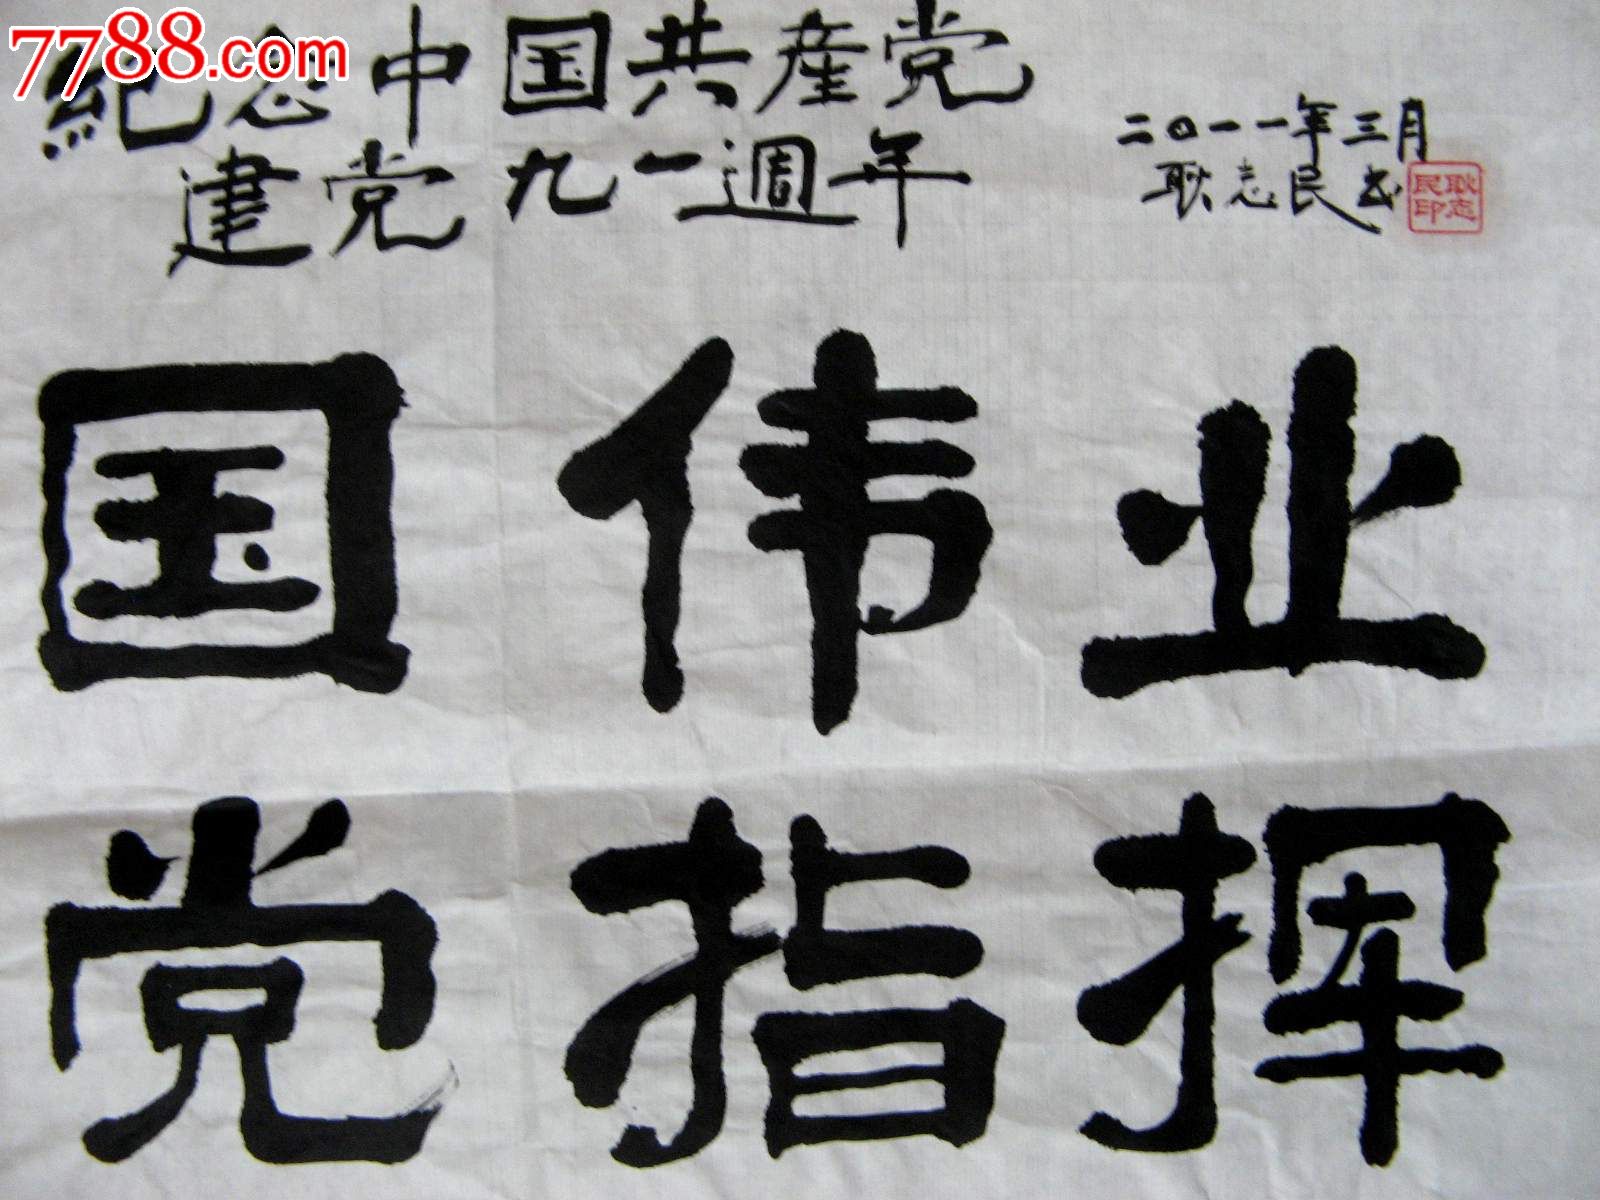 7788.com
紀念中国共産党
建党九一週年
二〇一一年三月
耿志民书
耿志民印
国伟业
党指挥